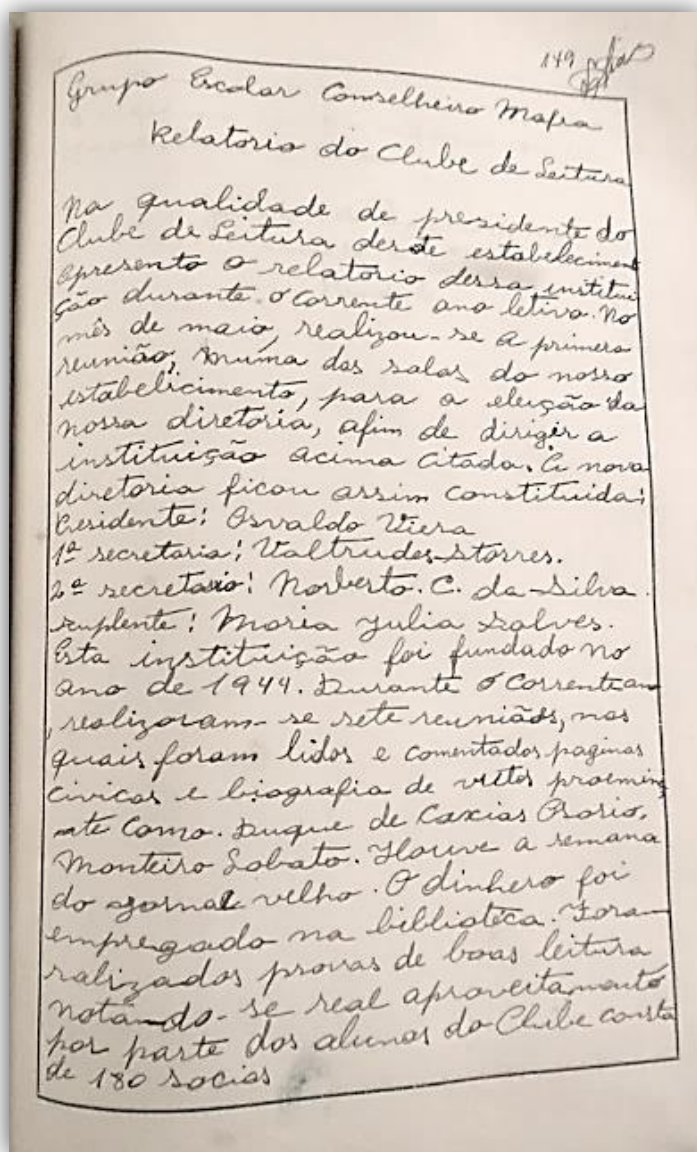 149
Grupo Escolar Conselheiro Mafra
Relatorio do Clube de Leitura
Na qualidade de presidente do
Clube de Leitura deste estabeleciment
apresento o relatorio dessa institui
ção durante o corrente ano letivo. No
mês de maio, realizou-se a primera
reunião, numa das salas do nosso
estabelicimento, para a eleição da
nossa diretoria, afim de dirigir a
instituição acima citada. A nova
diretoria ficou assim constituida:
Presidente: Osvaldo Viera
1ª secretaria: Valtrudes Storres.
2ª secretario: Norberto. C. da Silva.
suplente: Maria Julia Galves.
Esta instituição foi fundado no
ano de 1944. Durante o corrente an
, realizaram-se sete reuniãos, nas
quais foram lidos e comentados paginas
civicas e biografia de vultos proemin
nte como. Duque de Caxias Osorio,
Monteiro Lobato. Houve a semana
do jornal velho. O dinhero foi
empregado na biblioteca. Foram
ralizados provas de boas leitura
notando-se real aproveitamento
por parte dos alunos do Clube consta
de 180 socias